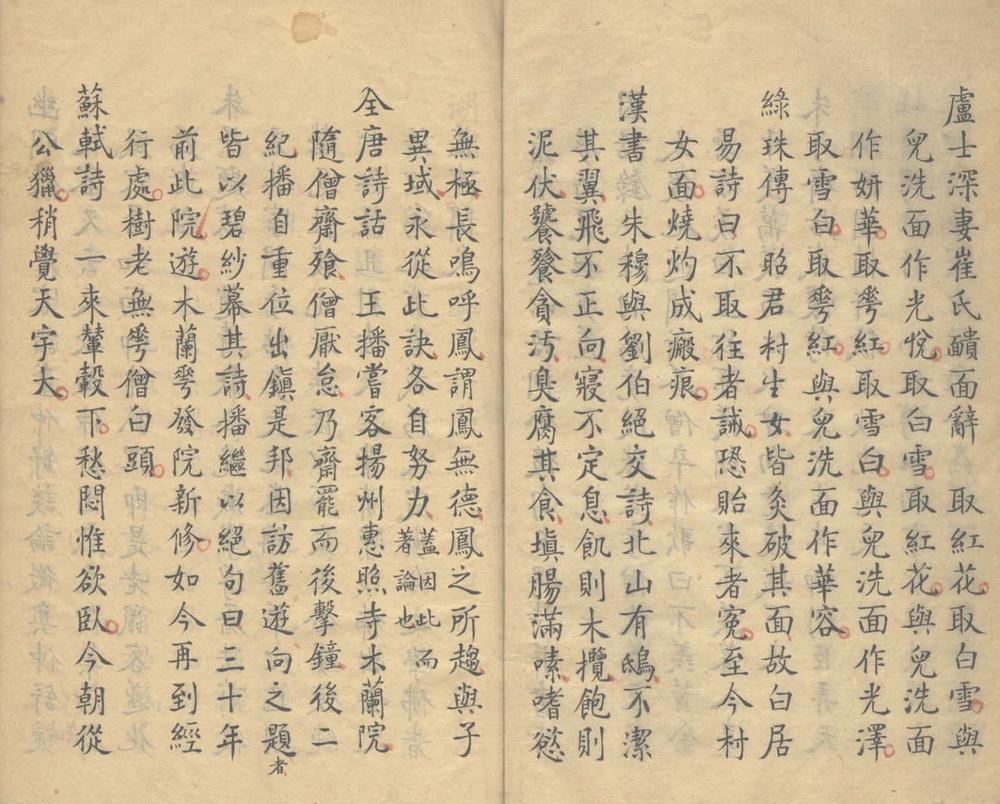 盧士深妻崔氏靧面辭　取紅花取白雪與
兒洗面作光悅取白雪取紅花與兒洗面
作妍華取雩紅取雪白與兒洗面作光澤
取雪白取雩紅與兒洗面作華容
綠珠傳昭君村生女皆灸破其面故白居
易詩曰不取往者誡恐貽來者寃至今村
女面燒灼成瘢痕
漢書　朱穆與劉伯絕交詩北山有鴟不潔
其翼飛不正向寢不定息飢則木攬飽則
泥伏饕餮貪汚臭腐其食塡腸滿嗉嗜慾
無極長鳴呼鳳謂鳳無德鳳之所趨與子
異域永從此訣各自努力蓋因此而著論也
全唐詩話　王播嘗客揚州惠照寺木蘭院
隨僧齋飱僧厭怠乃齋罷而後擊鐘後二
紀播自重位出鎭是邦因訪舊遊向之題者
皆以碧紗幕其詩播繼以絕句曰三十年
前此院遊木蘭雩發院新修如今再到經
行處樹老無雩僧白頭
蘇軾詩　一來輦轂下愁悶惟欲臥今朝從
公獵稍覺天宇大